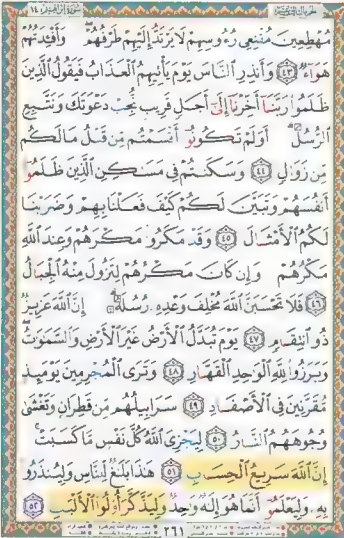 سورة إبراهيم ١٤
مُهْطِعِينَ مُقْنِعِى رُءُوسِهِمْ لَا يَرْتَدُّ إِلَيْهِمْ طَرْفُهُمْ وَأَفْـِٔدَتُهُمْ
هَوَآءٌ ٤٣ وَأَنذِرِ ٱلنَّاسَ يَوْمَ يَأْتِيهِمُ ٱلْعَذَابُ فَيَقُولُ ٱلَّذِينَ
ظَلَمُوا۟ رَبَّنَآ أَخِّرْنَآ إِلَىٰٓ أَجَلٍ قَرِيبٍ نُّجِبْ دَعْوَتَكَ وَنَتَّبِعِ
ٱلرُّسُلَ أَوَلَمْ تَكُونُوٓا۟ أَقْسَمْتُم مِّن قَبْلُ مَا لَكُم
مِّن زَوَالٍ ٤٤ وَسَكَنتُمْ فِى مَسَـٰكِنِ ٱلَّذِينَ ظَلَمُوٓا۟
أَنفُسَهُمْ وَتَبَيَّنَ لَكُمْ كَيْفَ فَعَلْنَا بِهِمْ وَضَرَبْنَا
لَكُمُ ٱلْأَمْثَالَ ٤٥ وَقَدْ مَكَرُوا۟ مَكْرَهُمْ وَعِندَ ٱللَّهِ
مَكْرُهُمْ وَإِن كَانَ مَكْرُهُمْ لِتَزُولَ مِنْهُ ٱلْجِبَالُ
٤٦ فَلَا تَحْسَبَنَّ ٱللَّهَ مُخْلِفَ وَعْدِهِۦ رُسُلَهُۥٓ إِنَّ ٱللَّهَ عَزِيزٌ
ذُو ٱنتِقَامٍ ٤٧ يَوْمَ تُبَدَّلُ ٱلْأَرْضُ غَيْرَ ٱلْأَرْضِ وَٱلسَّمَـٰوَٰتُ
وَبَرَزُوا۟ لِلَّهِ ٱلْوَٰحِدِ ٱلْقَهَّارِ ٤٨ وَتَرَى ٱلْمُجْرِمِينَ يَوْمَئِذٍ
مُّقَرَّنِينَ فِى ٱلْأَصْفَادِ ٤٩ سَرَابِيلُهُم مِّن قَطِرَانٍ وَتَغْشَىٰ
وُجُوهَهُمُ ٱلنَّارُ ٥٠ لِيَجْزِىَ ٱللَّهُ كُلَّ نَفْسٍ مَّا كَسَبَتْ
إِنَّ ٱللَّهَ سَرِيعُ ٱلْحِسَابِ ٥١ هَـٰذَا بَلَـٰغٌ لِّلنَّاسِ وَلِيُنذَرُوا۟
بِهِۦ وَلِيَعْلَمُوٓا۟ أَنَّمَا هُوَ إِلَـٰهٌ وَٰحِدٌ وَلِيَذَّكَّرَ أُو۟لُوا۟ ٱلْأَلْبَـٰبِ ٥٢
٢٦١